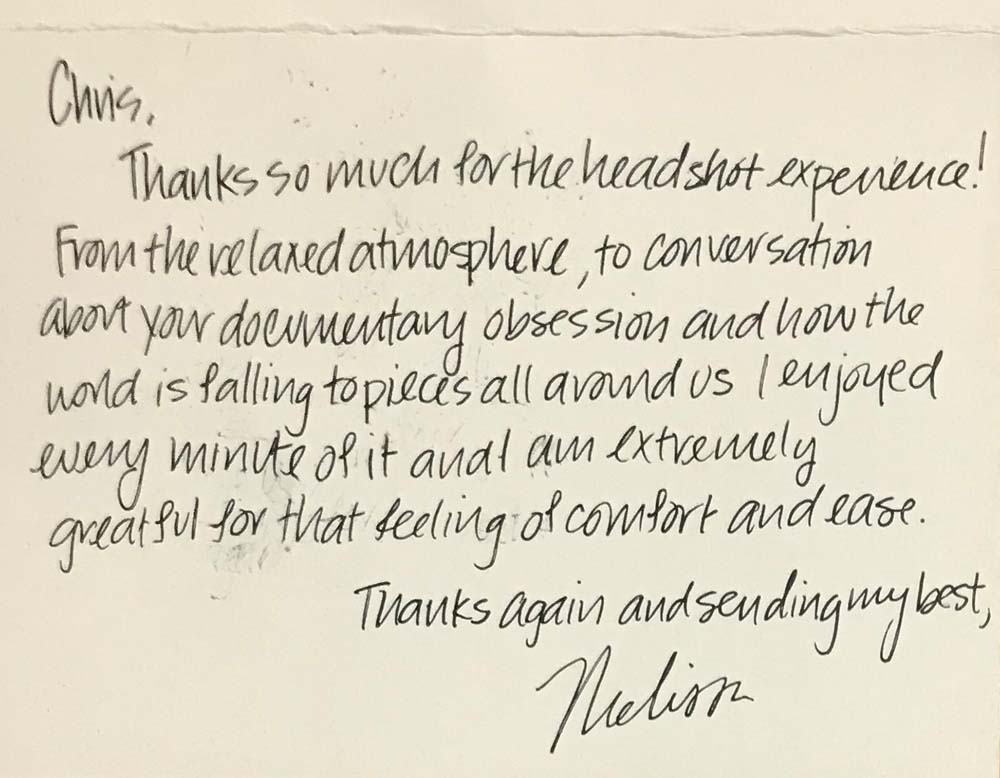 Chris,
Thanks so much for the headshot experience!
From the relaxed atmosphere, to conversation
about your documentary obsession and how the
world is falling to pieces all around us I enjoyed
every minute of it and I am extremely
greatful for that feeling of comfort and ease.
Thanks again and sending my best,
Melissa